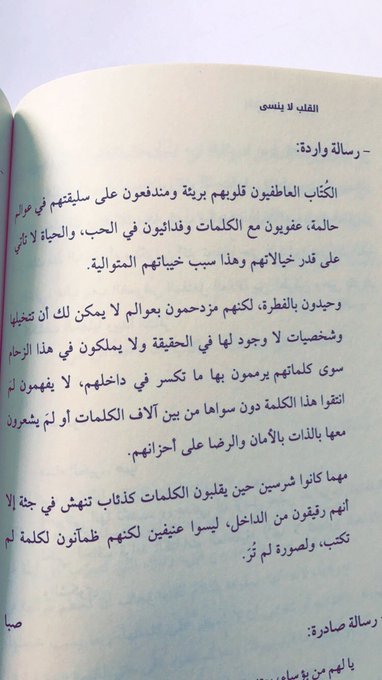 القلب لا ينسى
- رسالة واردة:
الكُتّاب العاطفيون قلوبهم بريئة ومندفعون على سليقتهم في عوالم
حالمة، عفويون مع الكلمات وفدائيون في الحب، والحياة لا تأتي
على قدر خيالاتهم وهذا سبب خيباتهم المتوالية.
وحيدون بالفطرة، لكنهم مزدحمون بعوالم لا يمكن لك أن تتخيلها
وشخصيات لا وجود لها في الحقيقة ولا يملكون في هذا الزحام
سوى كلماتهم يرممون بها ما تكسر في داخلهم، لا يفهمون لمَ
انتقوا هذا الكلمة دون سواها من بين آلاف الكلمات أو لمَ يشعرون
معها بالذات بالأمان والرضا على أحزانهم.
مهما كانوا شرسين حين يقلبون الكلمات كذئاب تنهش في جثة إلا
أنهم رقيقون من الداخل، ليسوا عنيفين لكنهم ظمآنون لكلمة لم
تكتب، ولصورة لم تُرَ.
صبا
رسالة صادرة:
يا لهم من بؤساء،